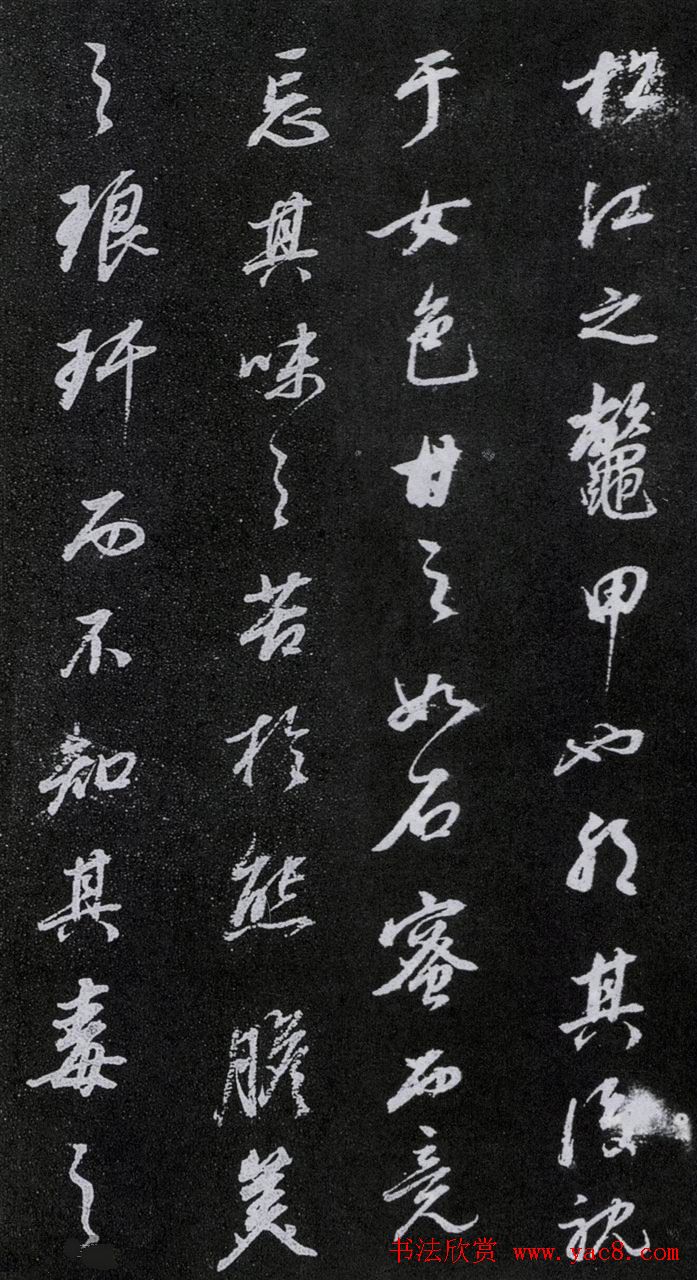 松江之鼇甲也其後耽
于女色甘之如石蜜而竟
忘其味之苦於熊膽美
之琅玕而不知其毒之
书法欣赏 www.yac8.com